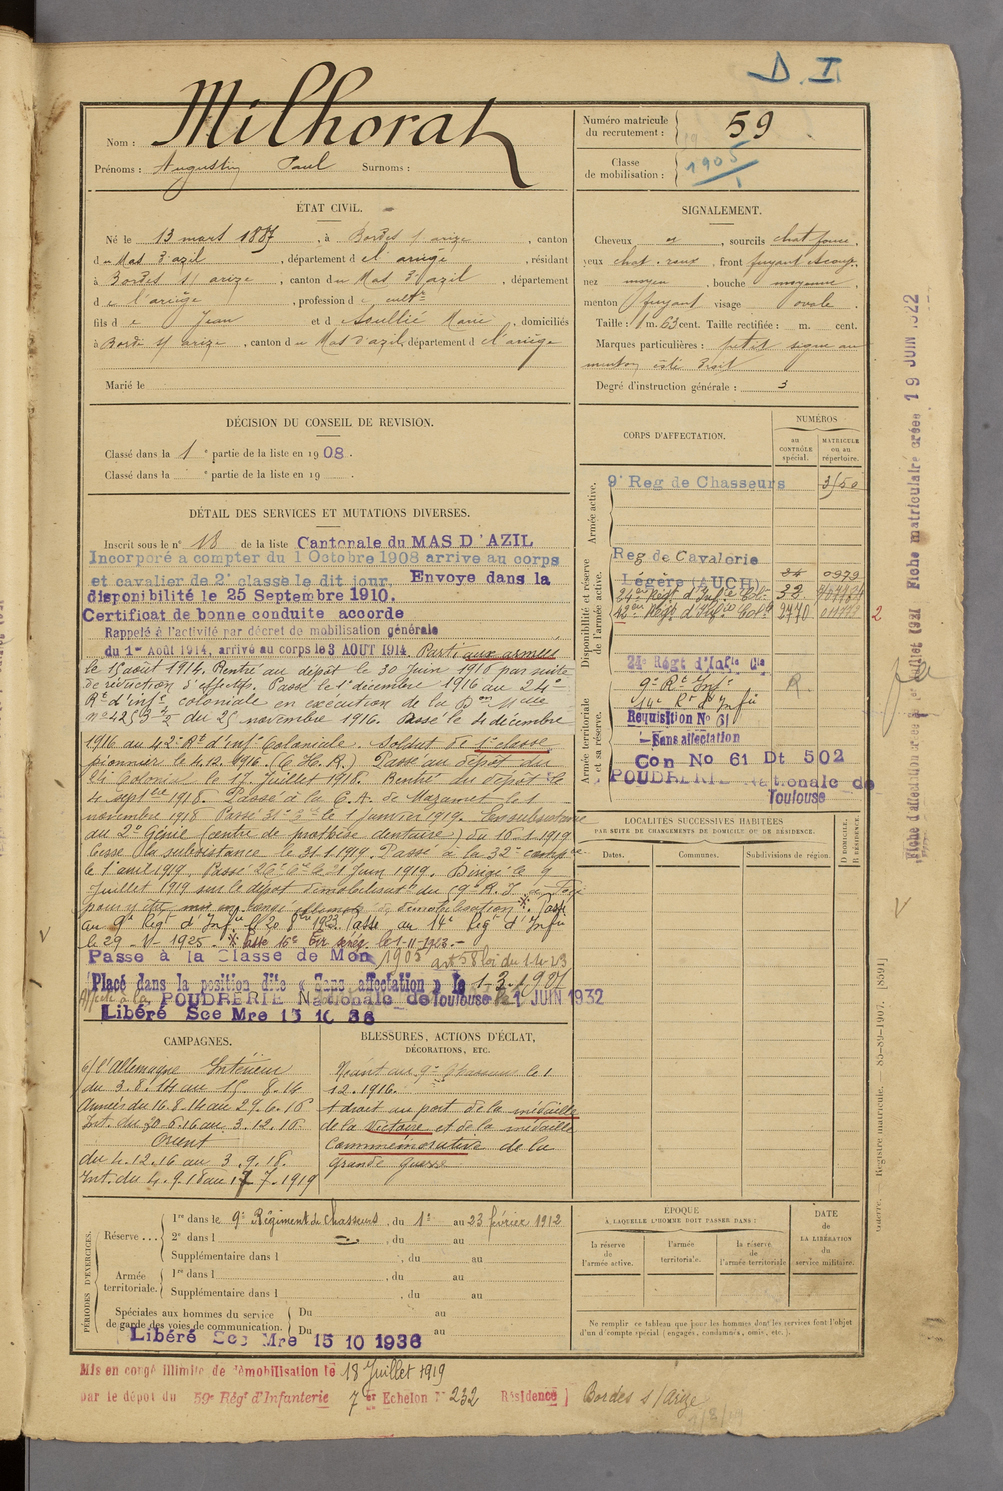 D. I.
Milhorat
Nom :
Prénoms : Augustin Paul Surnoms :
Numéro matricule du recrutement : 59
Classe de mobilisation : 1905
ÉTAT CIVIL.
Né le 13 mars 1887, à Bordes s/ arize, canton
du Mas d'azil, département de l'ariège, résidant
à Bordes s/ arize, canton du Mas d'azil, département
de l'ariège, profession de cultr
fils de Jean et de Soullié Marie, domiciliés
à Bordes s/ arize, canton du Mas d'azil, département de l'ariège
Marié le
SIGNALEMENT.
Cheveux , sourcils chat. foncé,
yeux chat. roux, front fuyant
nez moyen, bouche moyenne,
menton fuyant visage ovale
Taille : 1 m. 63 cent. Taille rectifiée : m. cent.
Marques particulières : petit signe au
menton côté droit
Degré d'instruction générale : 3
DÉCISION DU CONSEIL DE REVISION.
Classé dans la 1e partie de la liste en 1908.
Classé dans la e partie de la liste en 19 .
DÉTAIL DES SERVICES ET MUTATIONS DIVERSES.
Inscrit sous le n° 18 de la liste Cantonale du MAS D'AZIL
Incorporé a compter du 1 Octobre 1908 arrive au corps
et cavalier de 2e classe le dit jour. Envoye dans la
disponibilité le 25 Septembre 1910.
Certificat de bonne conduite accorde
Rappelé à l'activité par décret de mobilisation générale
du 1er Août 1914, arrivé au corps le 3 AOUT 1914 Parti aux armées
le 15 août 1914. Rentré au dépôt le 30 Juin 1916 par suite
de réduction d'effectifs. Passé le 1er décembre 1916 au 24e
Rt d'infie coloniale en exécution de la Don Mlle
n° 4253 du 25 novembre 1916. Passé le 4 décembre
1916 au 42e Rt d'infie Coloniale. Soldat de 1e classe
pionnier le 4.12.1916. (C.H.R.) Passé au dépôt du
24e Colonial le 17 Juillet 1918. Rentré du dépôt le
4 septbre 1918. Passé à la C.A. de Mazamet le 1
novembre 1918 Passé 31e le 1 Janvier 1919. En subsistance
au 2e Génie (centre de prothèse dentaire) du 16-1-1919
Cesse la subsistance le 31.1.1919. Passé à la 32e compie
le 1 avril 1919. Passé 26e Cie le 1 Juin 1919. Dirigé le 9
Juillet 1919 sur le dépôt démobilisateur du 59e R.I. à Foix
pour y être mis en congé illimité de démobilisation *. Passé
au 9e Regt d'Infie le 20 8bre 1923. Passé au 14e Regt d'Infie
le 29-V-1925. * Passé 16e le 1-11-1923.-
Passe à la Classe de Mon 1905 art 58 loi du 1-4-23
Placé dans la position dite « Sans affectation » le 1-3-1927
Affecté à la POUDRERIE Nationale de Toulouse le 1 JUIN 1932
Libéré Sce Mre 15 10 36
CORPS D'AFFECTATION.
NUMÉROS
au CONTRÔLE spécial.
MATRICULE ou au répertoire.
Armée active.
9e Reg de Chasseurs 3150
Disponibilité et réserve de l'armée active.
Reg de Cavalerie
Légère (AUCH) 24 0979
24e Régt d'Infie Cle 32
42e Régt d'Infie Cole 2770
2
Armée territoriale et sa réserve.
24e Régt d'Infie Cle
9e Rt Infie R.
14e Rt d'Infie
Requisition No 61
-Sans affectation
Con No 61 Dt 502
POUDRERIE Nationale de
Toulouse
LOCALITÉS SUCCESSIVES HABITÉES
PAR SUITE DE CHANGEMENTS DE DOMICILE OU DE RÉSIDENCE.
Dates. Communes. Subdivisions de région. D DOMICILE. R RÉSIDENCE.
CAMPAGNES.
c/ l'allemagne Intérieur
du 3.8.14 au 15.8.14
Armées du 16.8.14 au 29.6.16
Int. du 30.6.16 au 3.12.16.
Orient
du 4.12.16 au 3.9.18.
Int. du 4.9.18 au 17.7.1919
BLESSURES, ACTIONS D'ÉCLAT,
DÉCORATIONS, ETC.
Néant au 9e Chasseurs le 1
12.1916.
A droit au port de la médaille
de la Victoire et de la médaille
Commémorative de la
grande guerre
PÉRIODES D'EXERCICES.
Réserve ... 1re dans le 9e Régiment de Chasseurs, du 1er au 23 février 1912
2e dans l , du au
Supplémentaire dans l , du au
Armée territoriale. 1re dans l , du au
Supplémentaire dans l , du au
Spéciales aux hommes du service de garde des voies de communication. Du au
Du au
Libéré Sce Mre 15 10 1936
ÉPOQUE
À LAQUELLE L'HOMME DOIT PASSER DANS :
la réserve de l'armée active. l'armée territoriale. la réserve de l'armée territoriale
DATE de LA LIBÉRATION du service militaire.
Ne remplir ce tableau que pour les hommes dont les services font l'objet
d'un décompte spécial (engagés, condamnés, omis, etc.).
Mis en congé illimité de démobilisation le 18 Juillet 1919
par le dépôt du 59e Régt d'Infanterie 7e Echelon N° 232 Résidence Bordes s/ Arize
Fiche matriculaire créée 19 JUIN 1922
Guerre. Registre matricule. 85-89-1907. [8591]